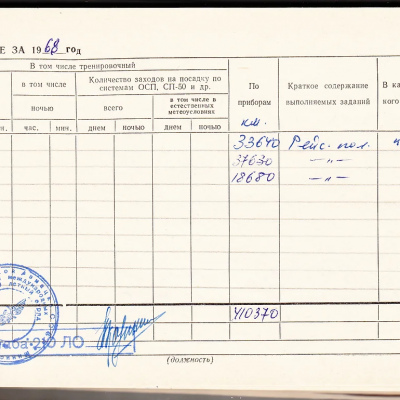 Е ЗА 1968 год
В том числе тренировочный
в том числе
ночью
Количество заходов на посадку по системам ОСП, СП-50 и др.
всего
в том числе в естественных метеоусловиях
По приборам
Краткое содержание выполняемых заданий
В ка
кого
час. мин. днем ночью днем ночью км.
33640 Рейс. пол.
37630 —„—
18680 —„—
410370
ба 210 ЛО
(должность)